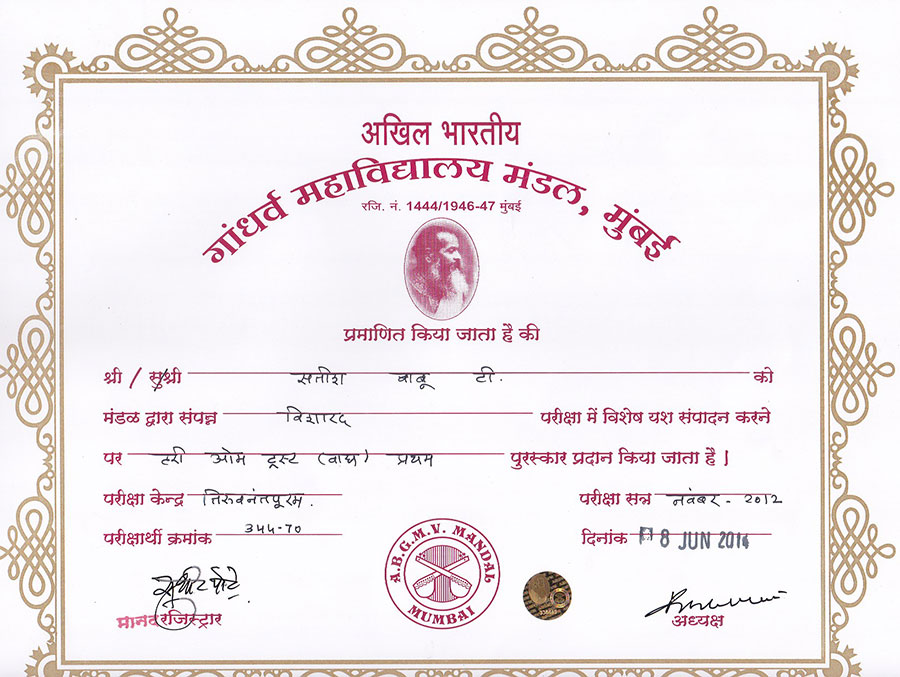 अखिल भारतीय
गांधर्व महाविद्यालय मंडल, मुंबई
रजि. नं. 1444/1946-47 मुंबई
प्रमाणित किया जाता है की
श्री / सुश्री सतीश बाबू टी. को
मंडळ द्वारा संपन्न विशारद परीक्षा में विशेष यश संपादन करने
पर हरी ओम ट्रस्ट (वाद्य) प्रथम पुरस्कार प्रदान किया जाता है |
परीक्षा केन्द्र तिरुवनंतपूरम. परीक्षा सत्र नवंबर - २०१२
परीक्षार्थी क्रमांक ३४५-७० दिनांक 8 JUN 2014
A.B.G.M.V. MANDAL
MUMBAI
मानद रजिस्ट्रार अध्यक्ष